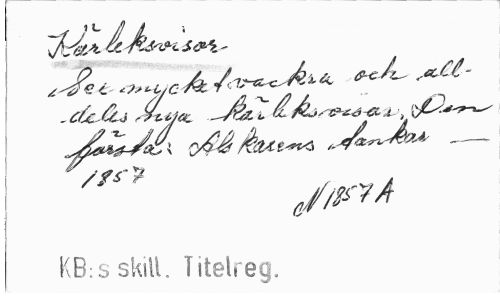 Kärleksvisor
Sex mycket vackra och all-
deles nya kärleksvisor. Den
första: Älskarens tankar —
1857
N 1857 A
KB:s skill. Titelreg.